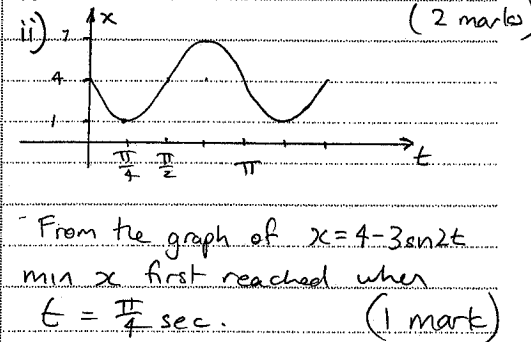 (2 marks)
ii)
x
7
4
1
π/4 π/2 π t
- From the graph of x = 4 - 3sn2t
min x first reached when
t = π/4 sec. (1 mark)